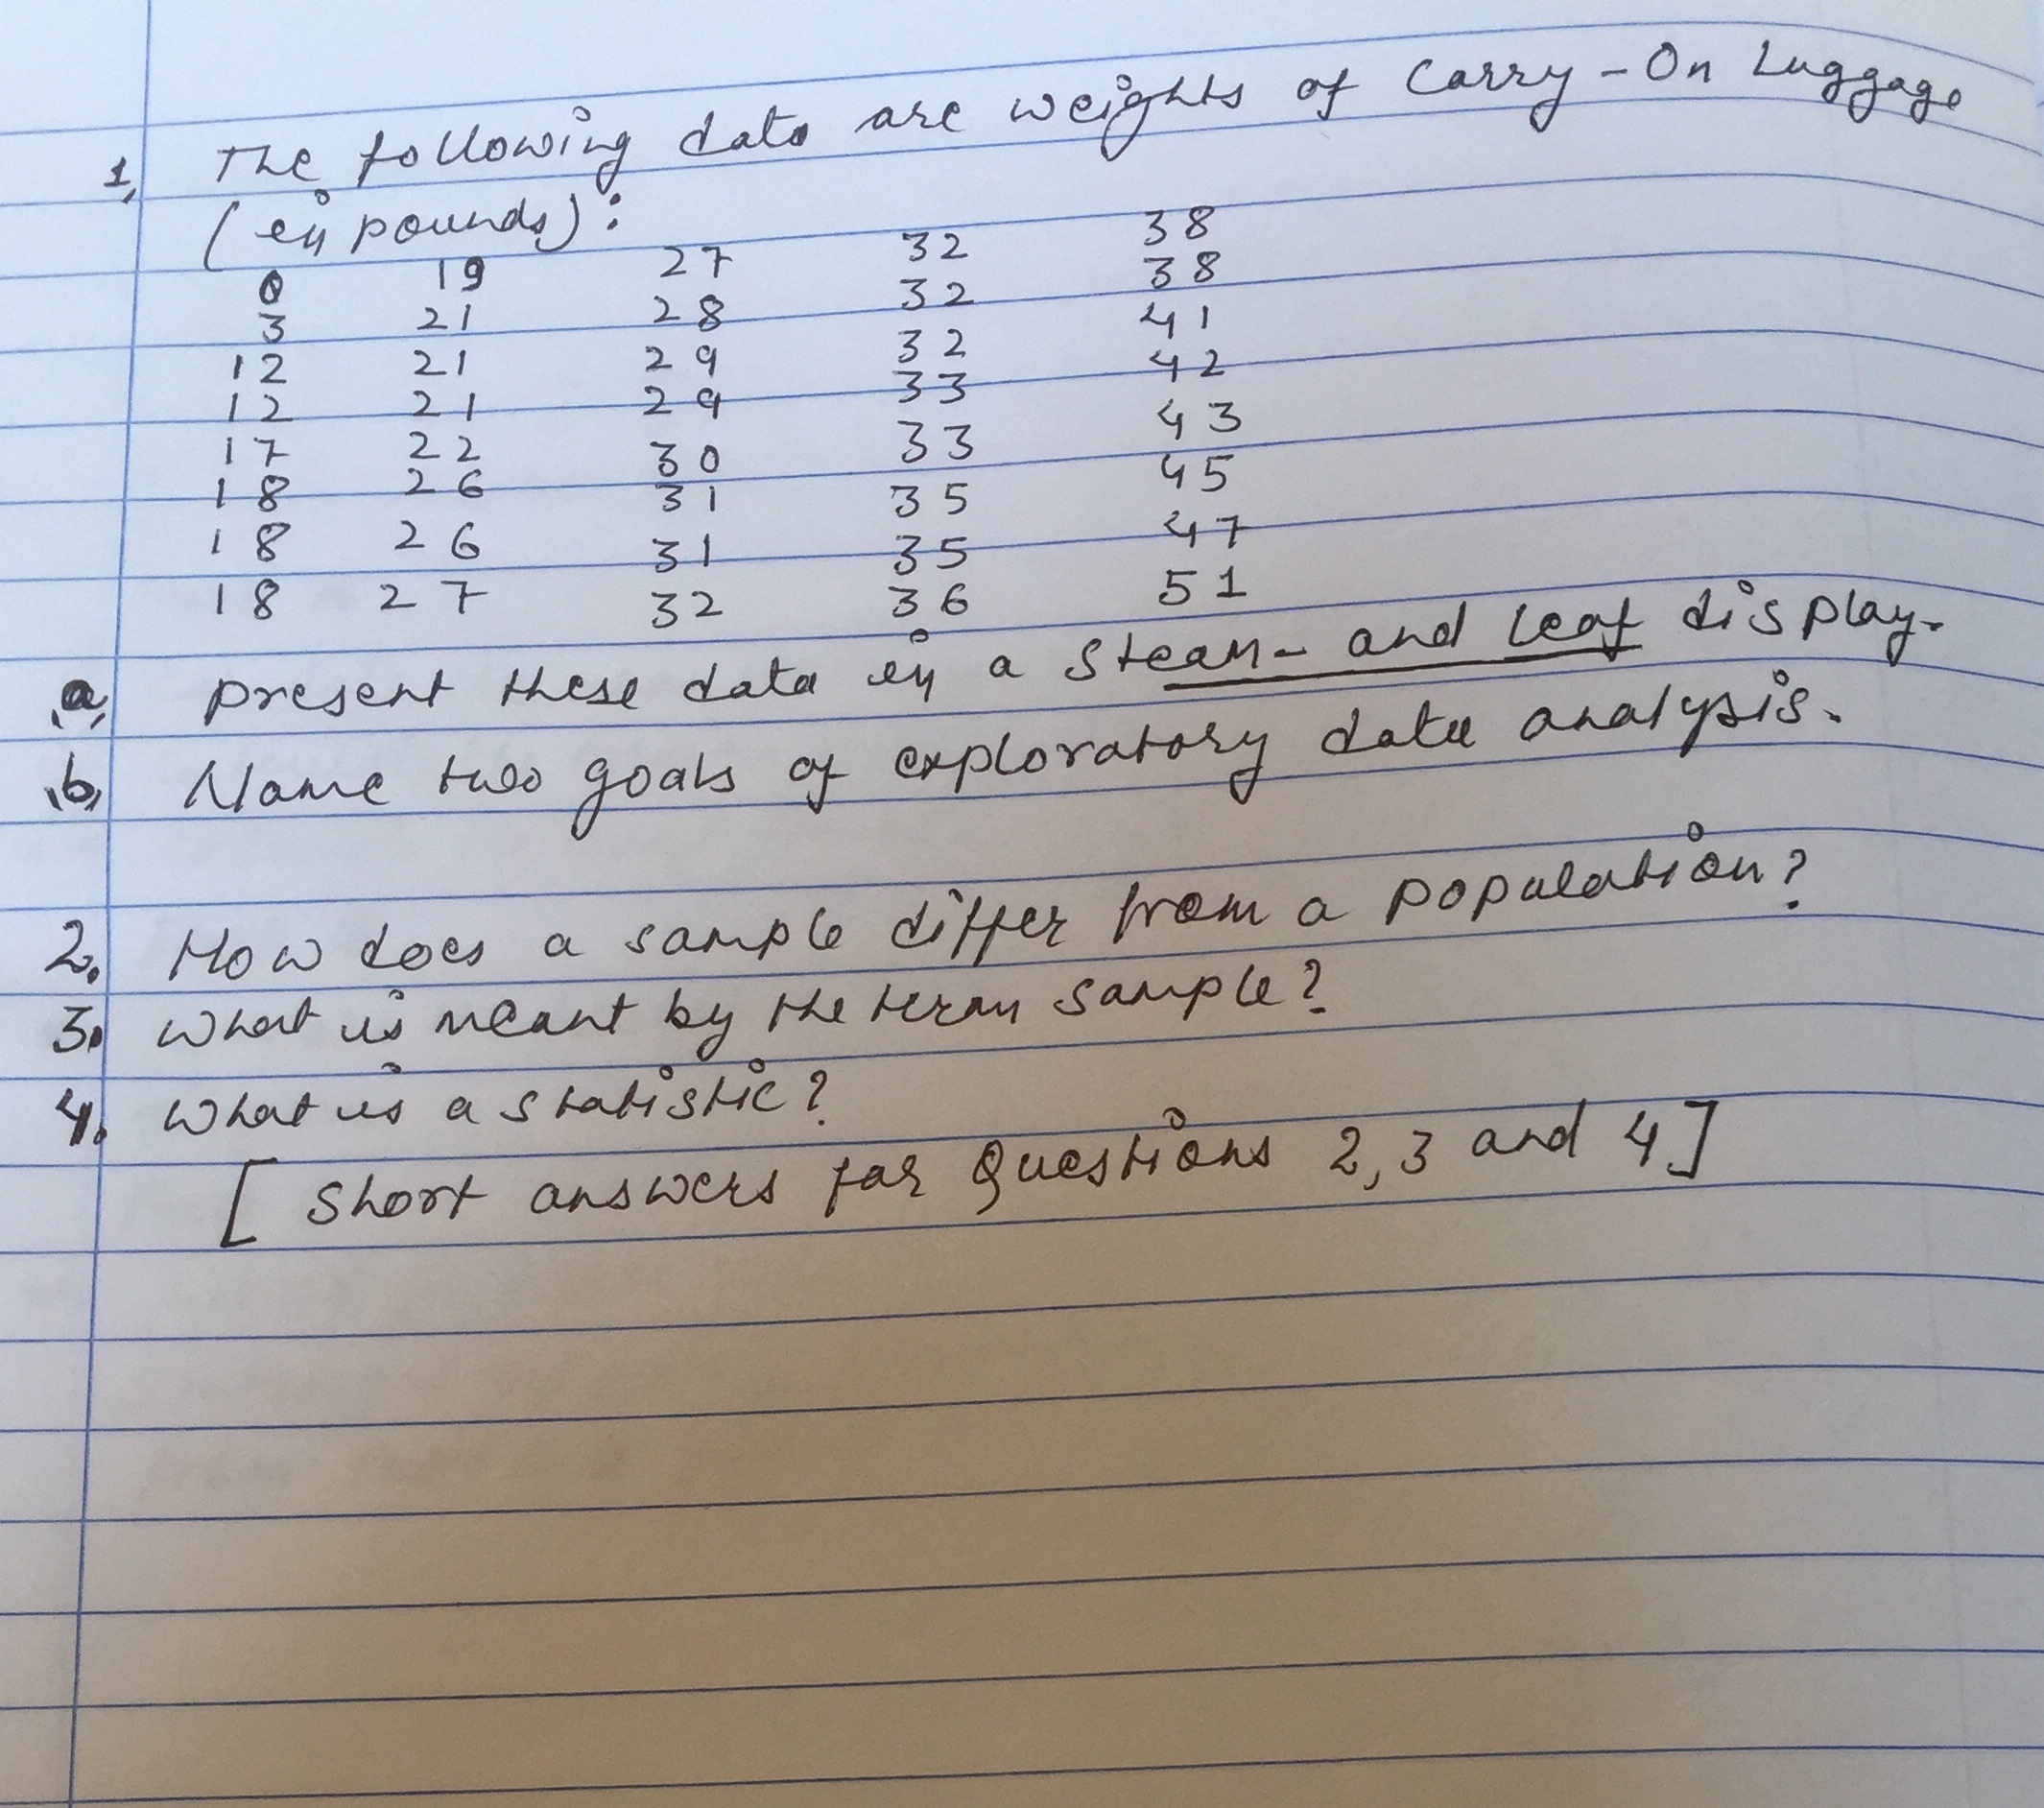 1, The following data are weights of Carry-On Luggage
(in pounds):
0 19 27 32 38
3 21 28 32 38
12 21 29 32 41
12 21 29 33 42
17 22 30 33 43
18 26 31 35 45
18 26 31 35 47
18 27 32 36 51
a, present these data in a steam- and leaf display.
b, Name two goals of exploratory data analysis.
2. How does a sample differ from a population?
3. What is meant by the term sample?
4. What is a statistic?
[ Short answers for Questions 2, 3 and 4]